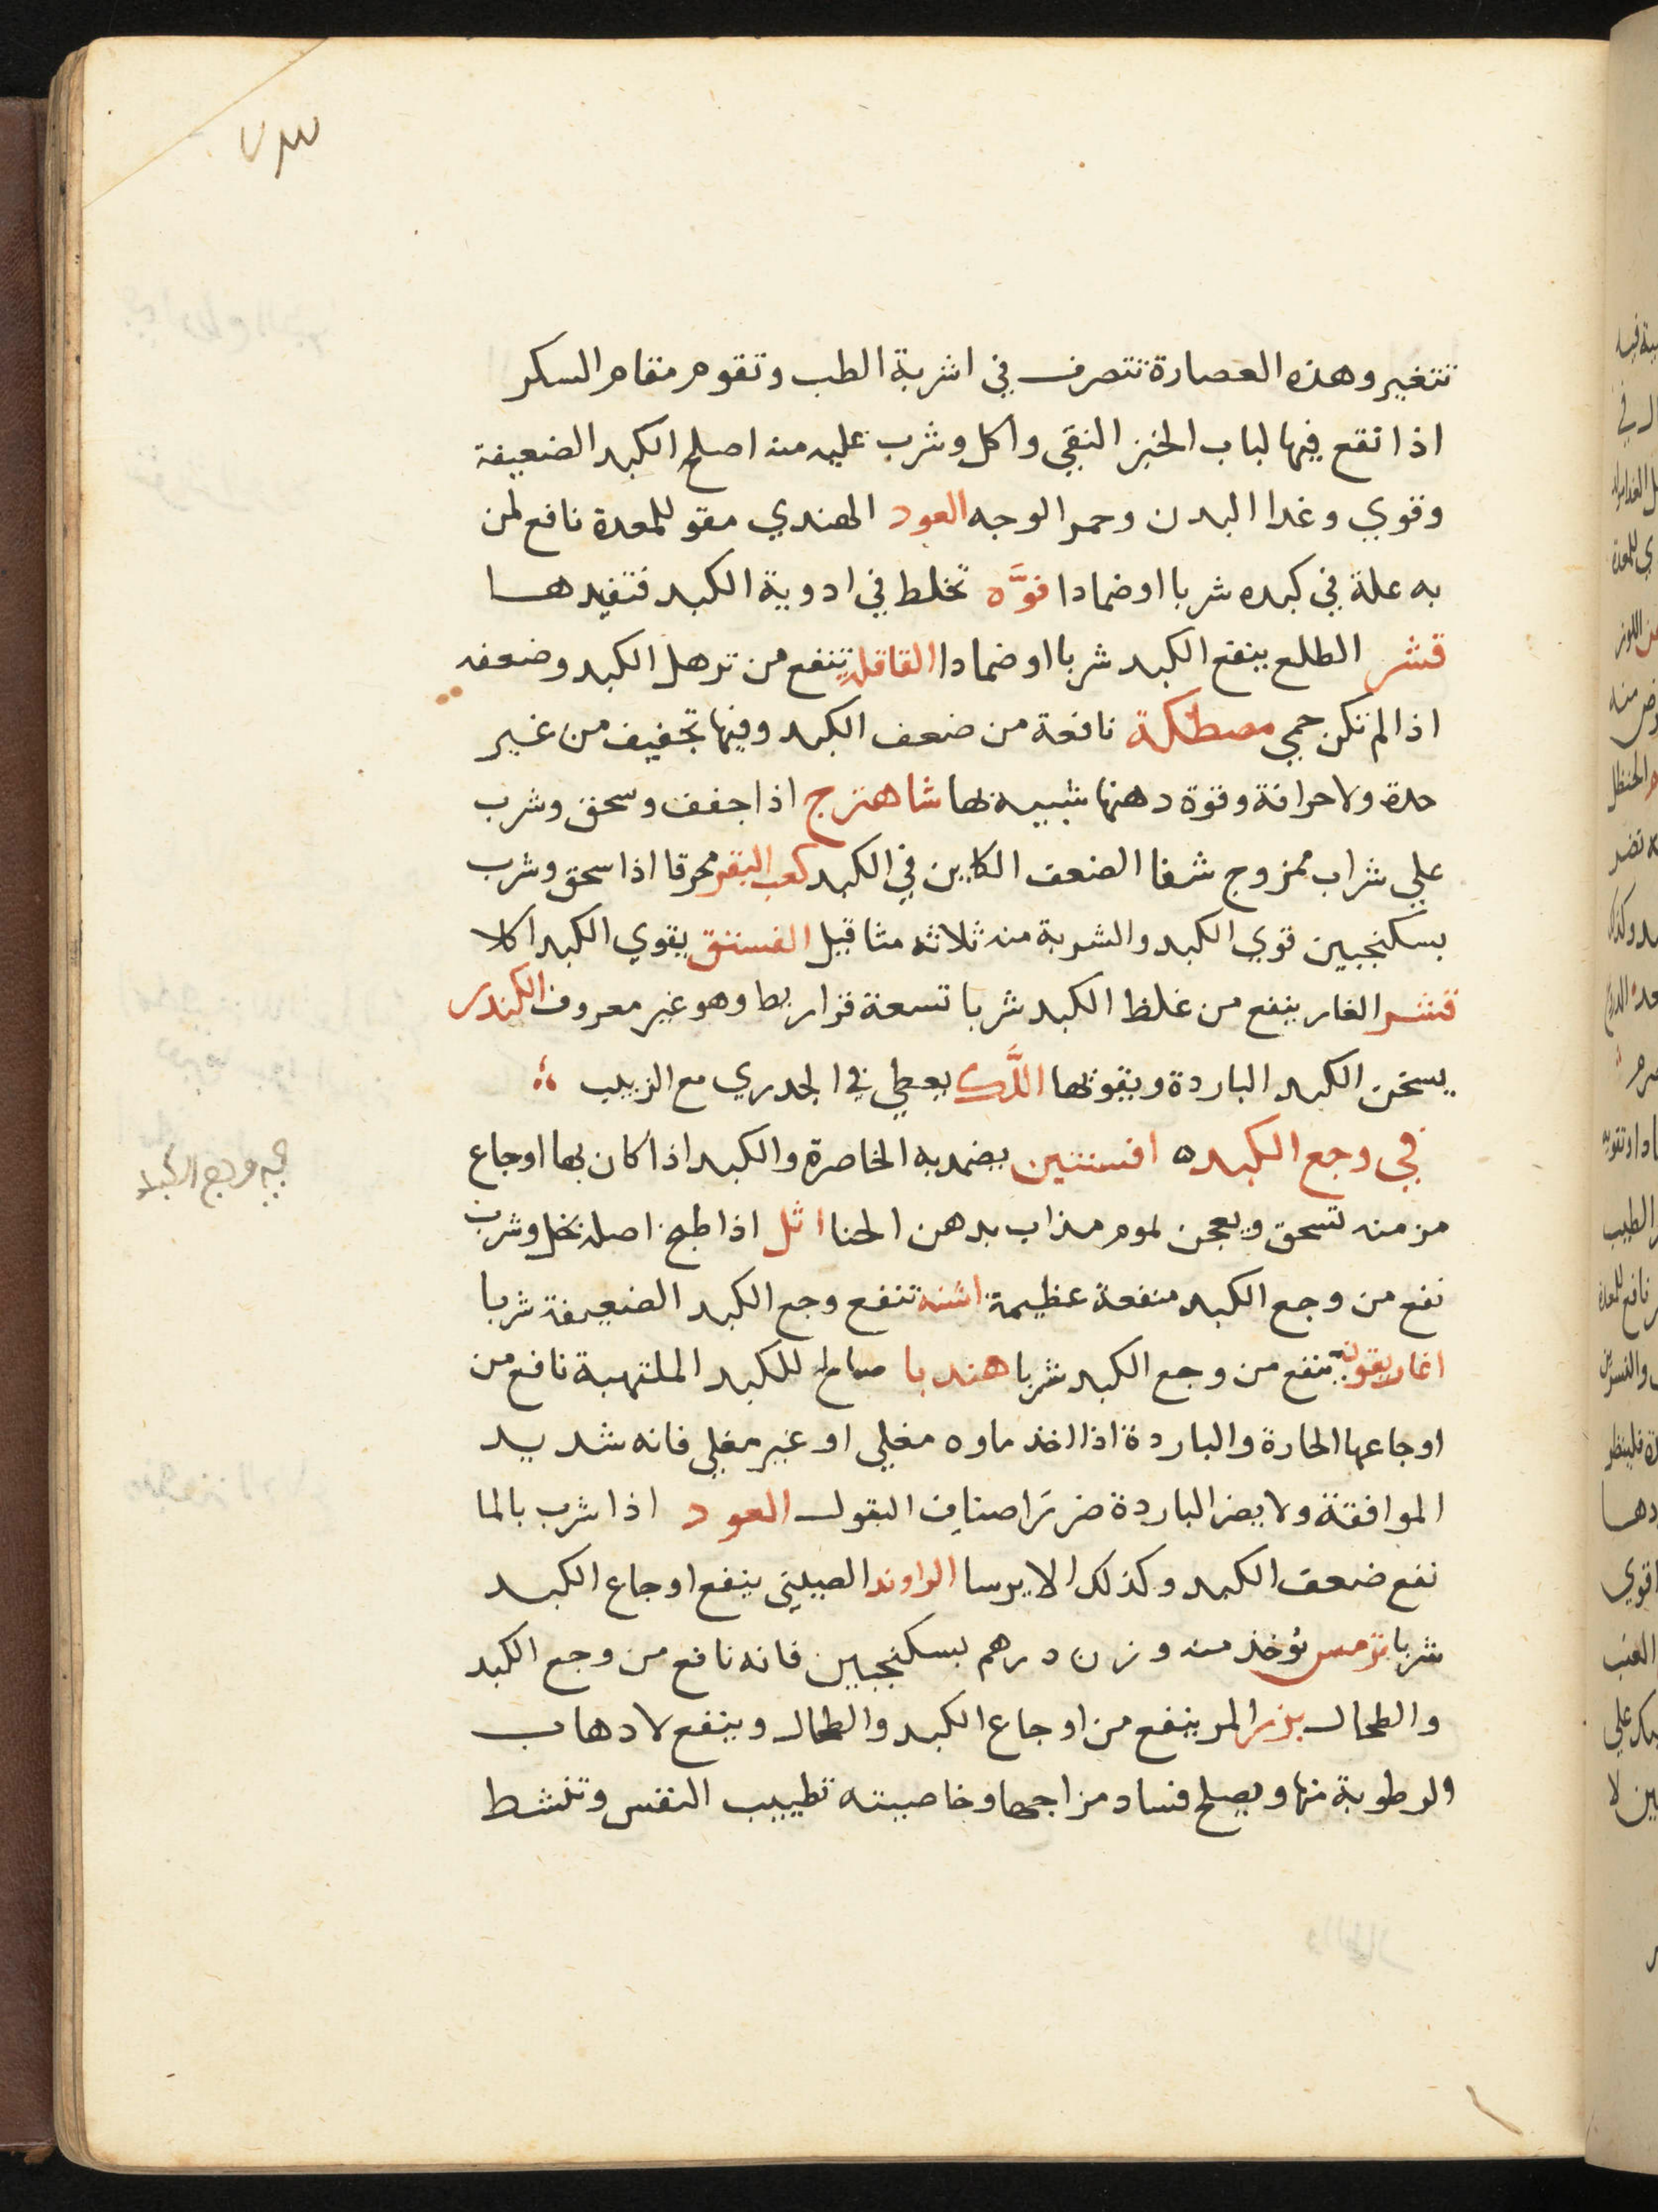 ٧٣
تتغير وهذه العصارة تتصرف في اشربة الطب وتقوم مقام السكر
اذا نقع فيها لباب الخبز النقي واكل وشرب عليه منه اصلح الكبد الضعيفة
وقوي وغدا البدن وحمر الوجه العود الهندي مقو للمعدة نافع لمن
به علة في كبده شربا او ضمادا فوَّه تخلط في ادوية الكبد فتفيدها
قشر الطلع ينفع الكبد شربا او ضمادا القاقلة تنفع من ترهل الكبد وضعفه
اذا لم تكن حمي مصطكة نافعة من ضعف الكبد وفيها تجفيف من غير
حدة ولا حرافة وقوة دهنها شبيه بها شاهترج اذا جفف وسحق وشرب
علي شراب ممزوج شفا الضعف الكاين في الكبد كعب البقر محرقا اذا سحق وشرب
بسكنجبين قوي الكبد والشربة منه ثلاثه مثاقيل الفستق يقوي الكبد اكلا
قشر الغار ينفع من غلظ الكبد شربا تسعة قراريط وهو غير معروف الكندر
يسخن الكبد الباردة ويقويها اللَّك يعطي في الجدري مع الزبيب
في وجع الكبده افسنتين يضمد به الخاصرة والكبد اذا كان بها اوجاع
في وجع الكبد
مزمنه تسحق ويعجن لموم مذاب بدهن الحنا اثل اذا طبخ اصله بخل وشرب
نفع من وجع الكبد منفعة عظيمة اشنه تنفع وجع الكبد الضعيفة شربا
اغاريقون ينفع من وجع الكبد شربا هندبا صالح للكبد الملتهبة نافع من
اوجاعها الحارة والباردة اذا اخذ ماوه مغلي او غير مغلي فانه شديد
الموافقة ولا يضر الباردة ضرَرَ اصناف البقول العود اذا شرب بالما
نفع ضعف الكبد وكذلك الايرسا الراوند الصيني ينفع اوجاع الكبد
شربا ترمس يؤخذ منه وزن درهم بسكنجبين فانه نافع من وجع الكبد
والطحال بزر المر ينفع من اوجاع الكبد والطحال وينفع لادهاب
الرطوبة منها ويصلح فساد مزاجها وخاصيته تطييب النفس وتنشط